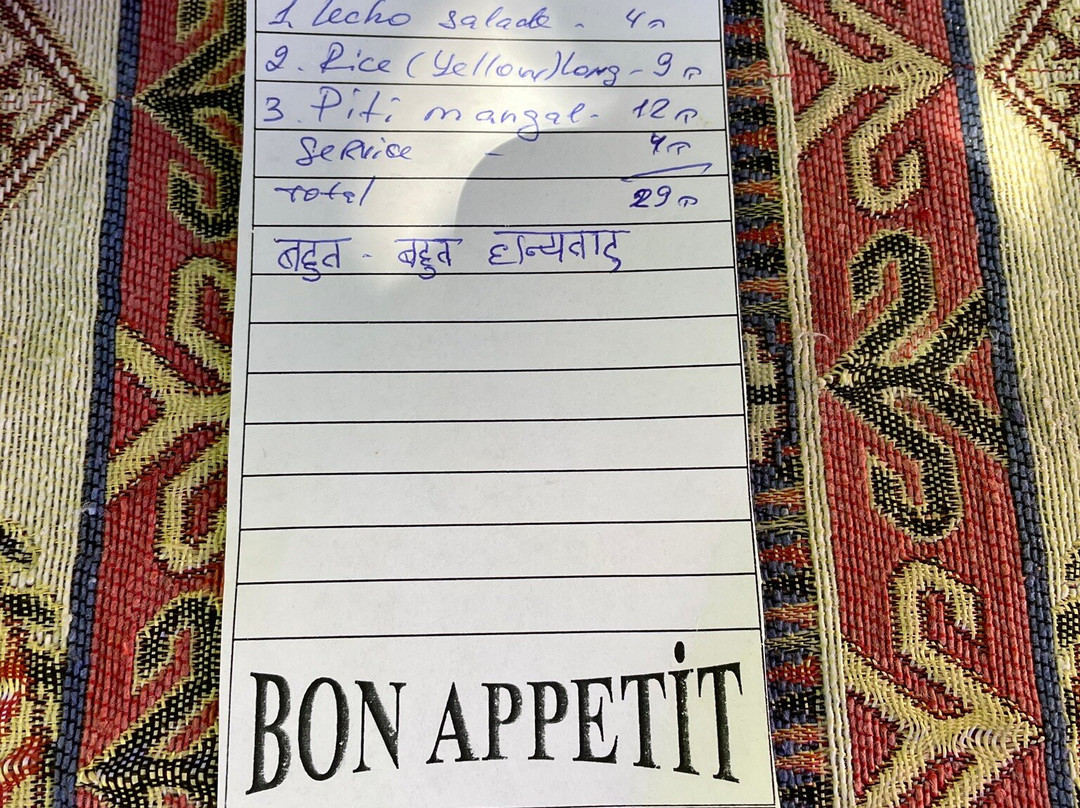 1. Lecho salade - 4₼
2. Rice (Yellow) long - 9₼
3. Piti mangal - 12₼
Service - 4₼
Total 29₼
बहुत - बहुत धन्यवाद
BON APPETİT